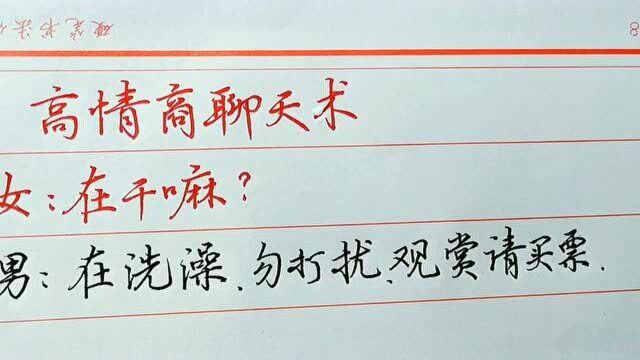 硬笔书法
8
高情商聊天术
女:在干嘛?
男:在洗澡、勿打扰、观赏请买票.